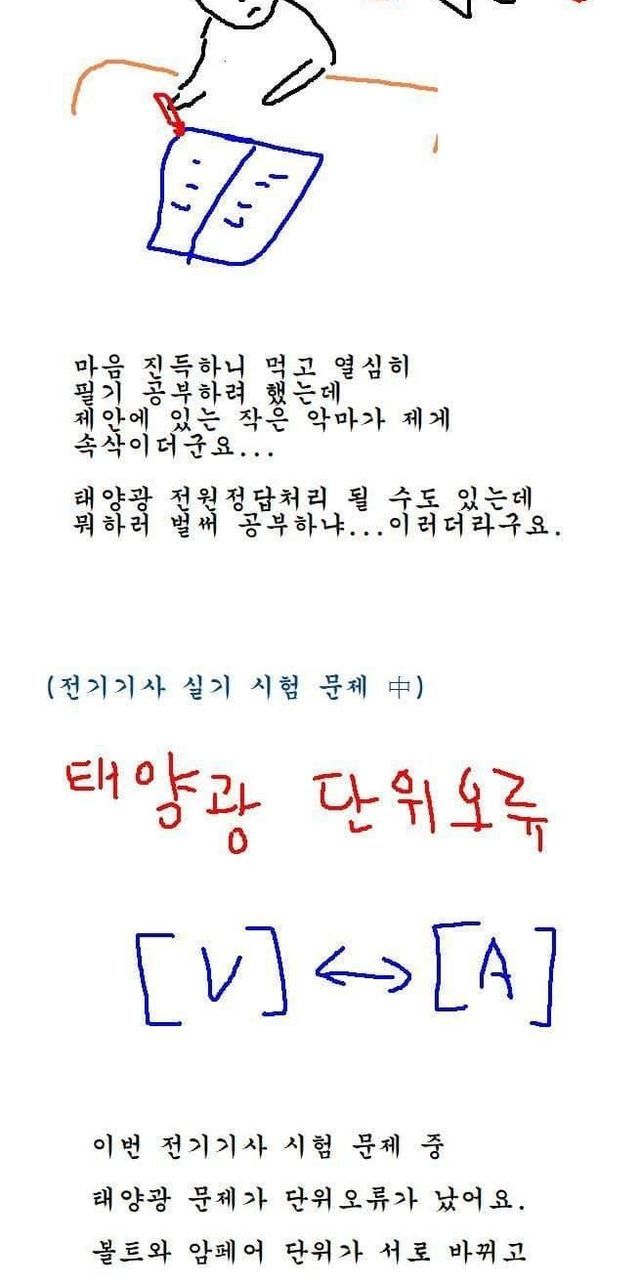 마음 진득하니 먹고 열심히
필기 공부하려 했는데
제안에 있는 작은 악마가 제게
속삭이더군요...
태양광 전원정답처리 될 수도 있는데
뭐하러 벌써 공부하냐...이러더라구요.
(전기기사 실기 시험 문제 中)
태양광 단위오류
[V] ↔ [A]
이번 전기기사 시험 문제 중
태양광 문제가 단위오류가 났어요.
볼트와 암페어 단위가 서로 바뀌고